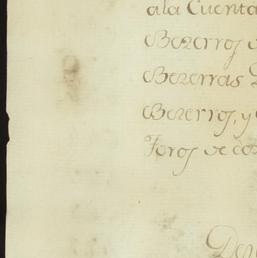 ala Cuenta
Bezerros d
Bezerras
Bezerros, y
Toros de co
De